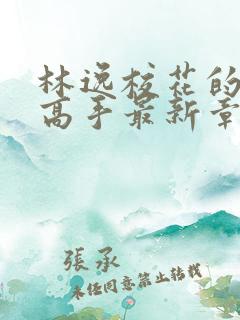 林逸校花的
高手最新章
張承
未经同意禁止转载